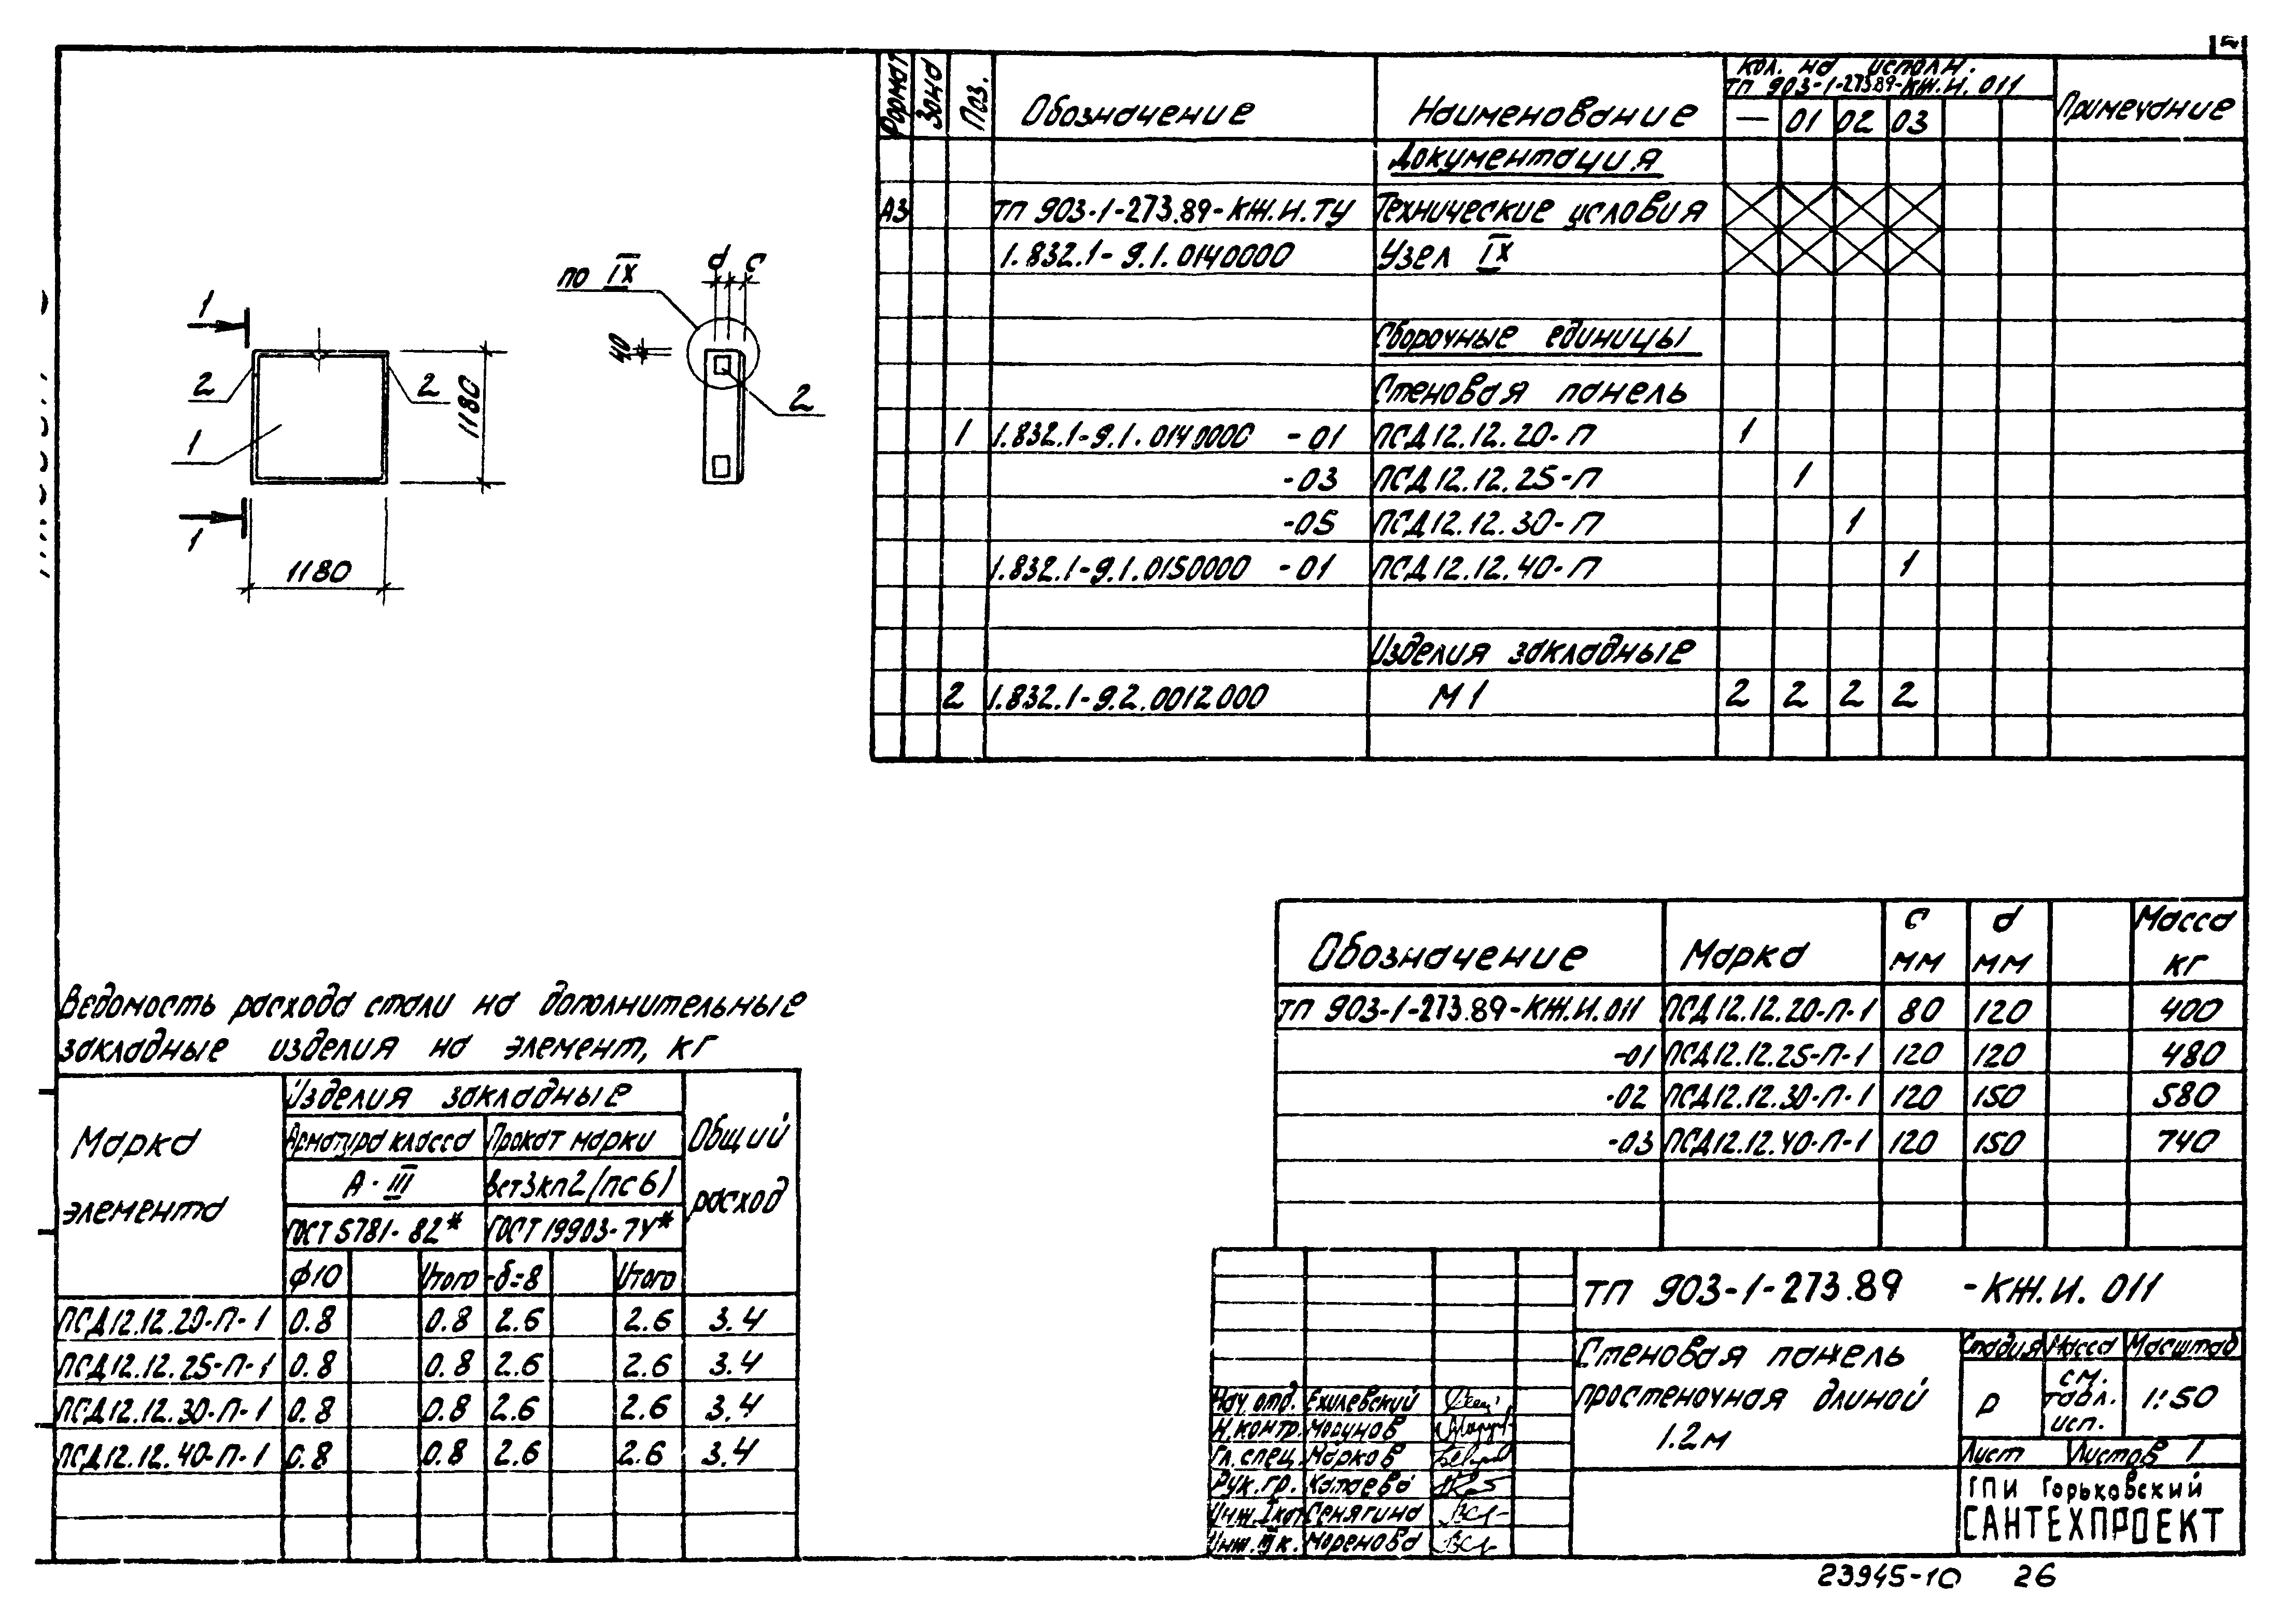 Формат
Зона
Поз.
Обозначение
Наименование
Кол. на исполн.
ТП 903-1-273.89-КЖ.И. 011
— 01 02 03
Примечание
Документация
А3 ТП 903-1-273.89-КЖ.И.ТУ Технические условия
1.832.1-9.1.0140000 Узел IX
Сборочные единицы
Стеновая панель
1 1.832.1-9.1.0140000 -01 ПСД12.12.20-П 1
-03 ПСД12.12.25-П 1
-05 ПСД12.12.30-П 1
1.832.1-9.1.0150000 -01 ПСД12.12.40-П 1
Изделия закладные
2 1.832.1-9.2.0012000 М1 2 2 2 2
1
2
2
1
1
1180
1180
по IX
d c
40
2
Обозначение Марка c мм d мм Масса кг
ТП 903-1-273.89-КЖ.И.011 ПСД12.12.20-П-1 80 120 400
-01 ПСД12.12.25-П-1 120 120 480
-02 ПСД12.12.30-П-1 120 150 580
-03 ПСД12.12.40-П-1 120 150 740
Ведомость расхода стали на дополнительные
закладные изделия на элемент, кг
Марка элемента
Изделия закладные
Общий расход
Арматура класса Прокат марки
А-III Вст3кп2/(пс6)
ГОСТ 5781-82* ГОСТ 19903-74*
ф10 Итого -δ=8 Итого
ПСД12.12.20-П-1 0.8 0.8 2.6 2.6 3.4
ПСД12.12.25-П-1 0.8 0.8 2.6 2.6 3.4
ПСД12.12.30-П-1 0.8 0.8 2.6 2.6 3.4
ПСД12.12.40-П-1 0.8 0.8 2.6 2.6 3.4
ТП 903-1-273.89 -КЖ.И. 011
Стеновая панель
простеночная длиной
1.2м
Стадия Масса Масштаб
Р см. табл. исп. 1:50
Лист Листов 1
ГПИ Горьковский
САНТЕХПРОЕКТ
Нач.отд. Ехилевский
Н.контр. Моргунов
Гл.спец. Марков
Рук.гр. Катаева
Инж.Iкат Сенягина
Инж.IIк. Моренова
23945-10 26